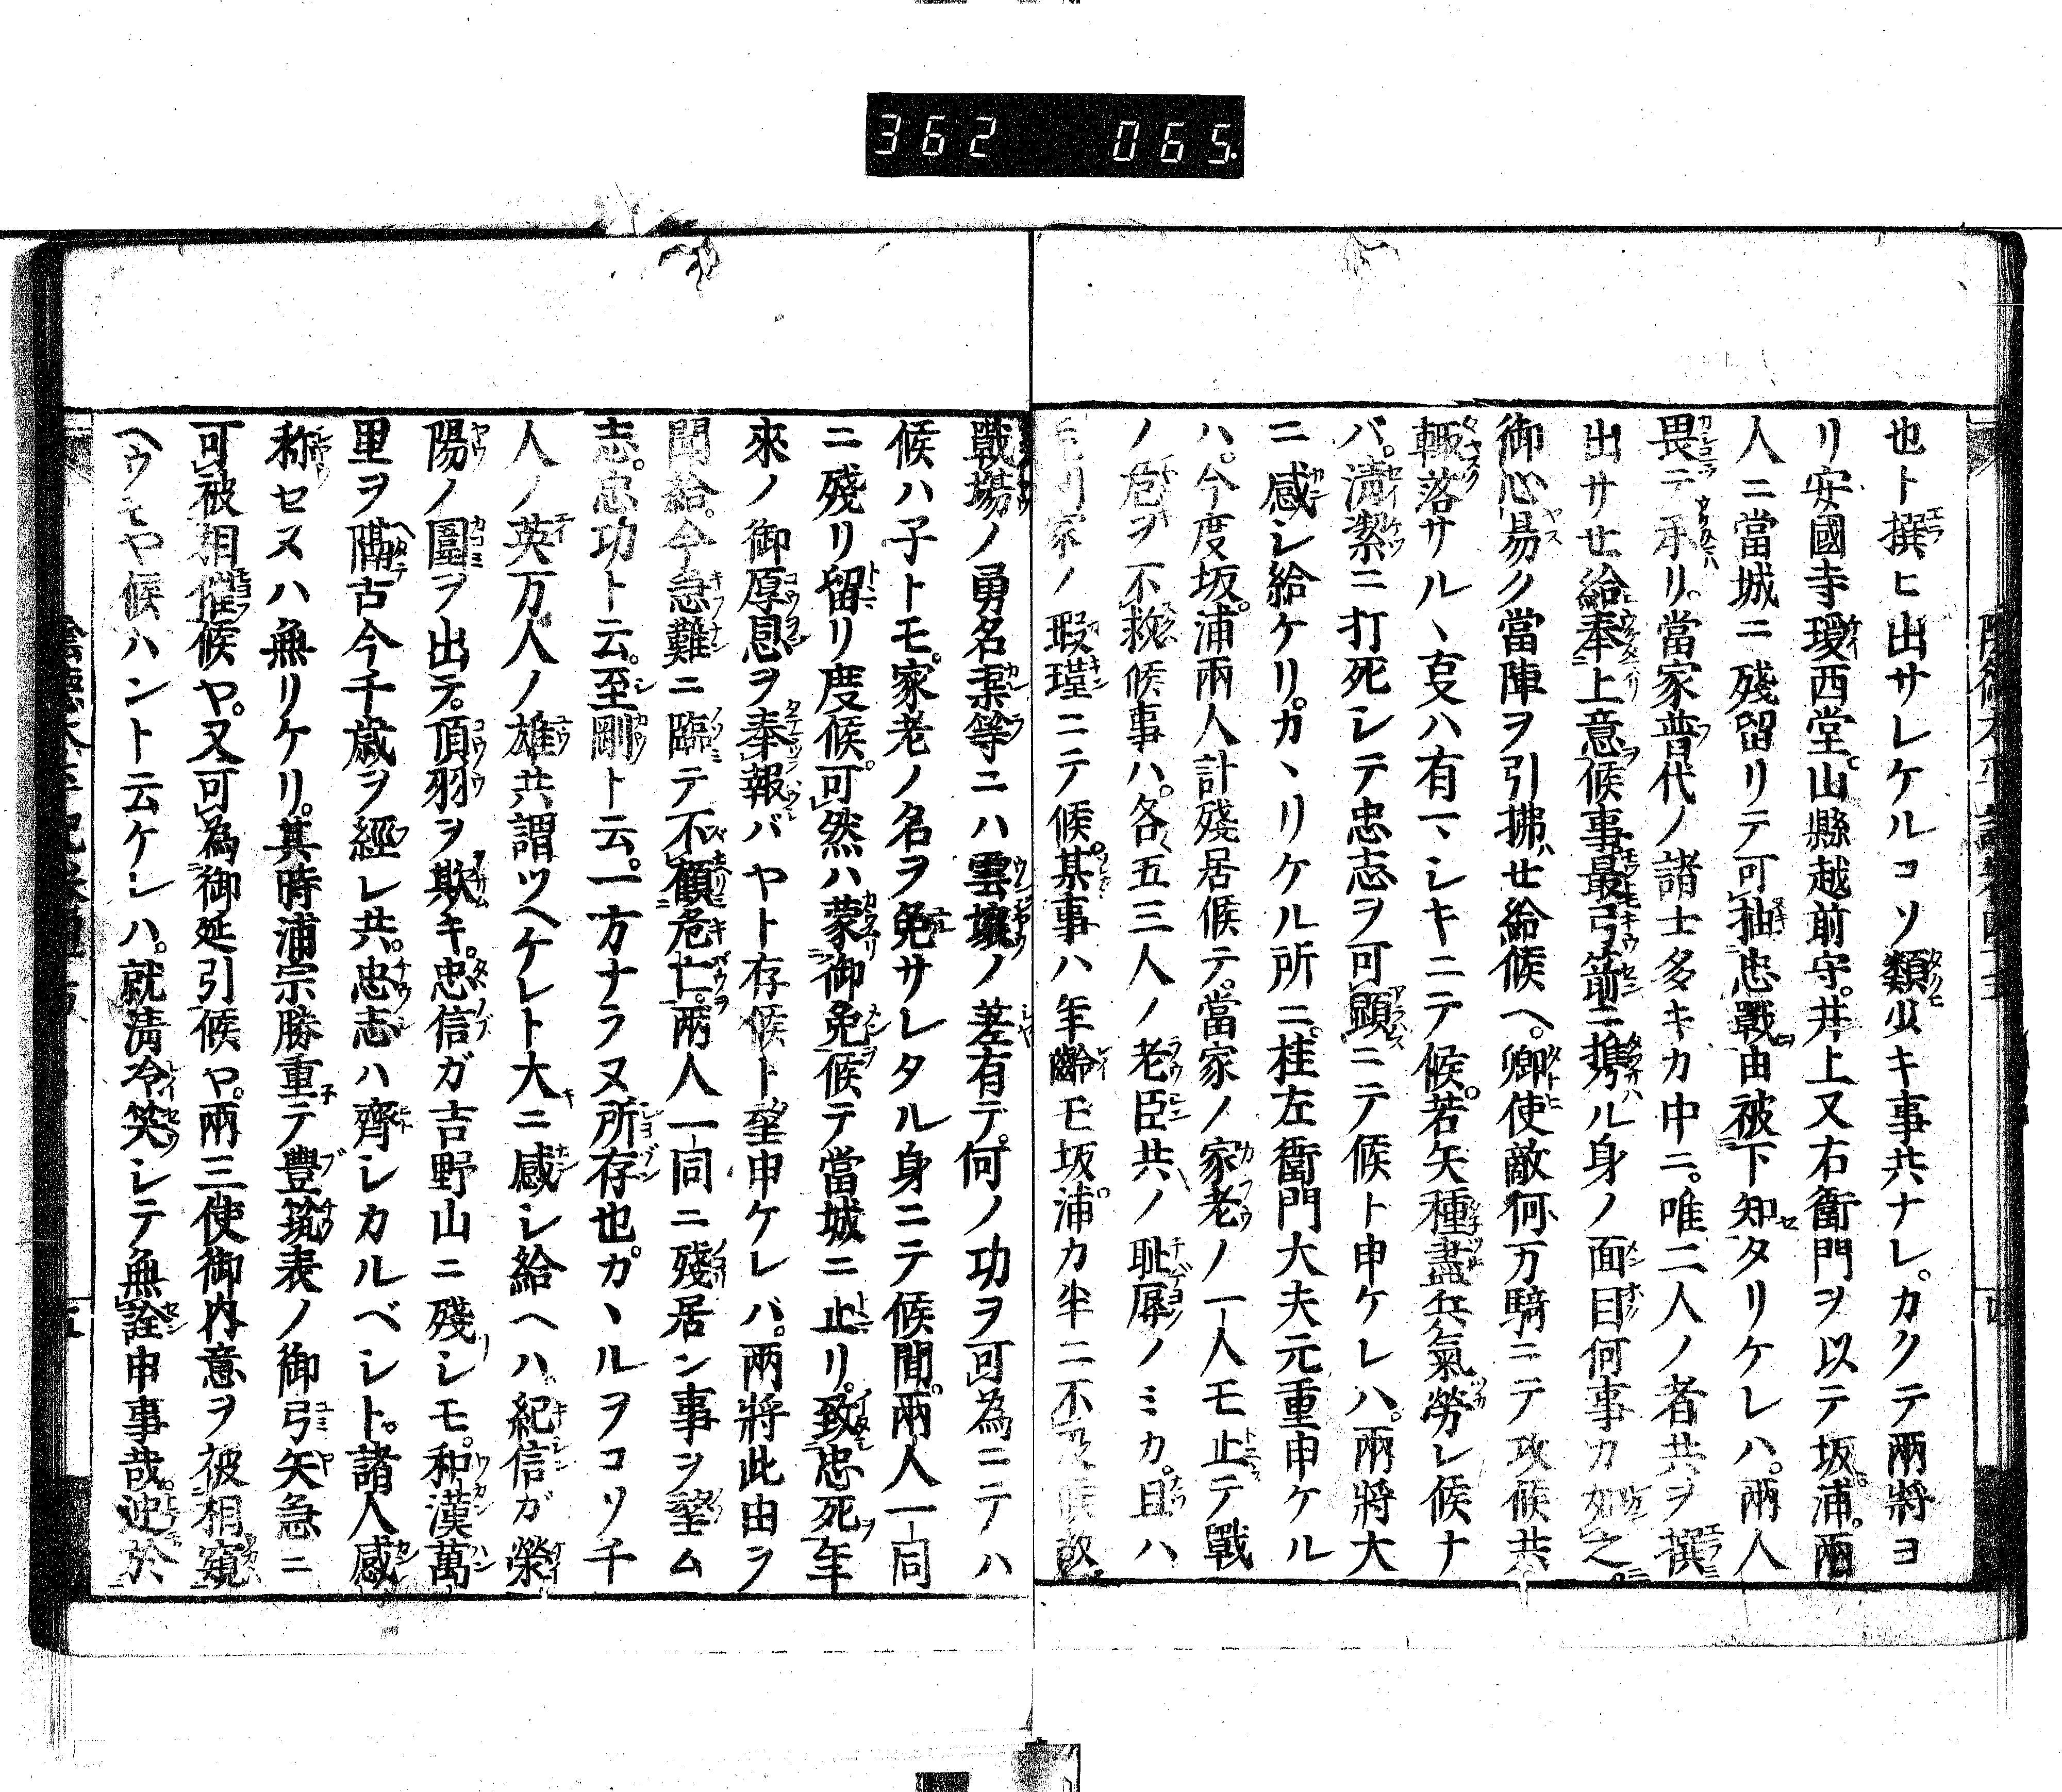 362 065
也ト撰ヒ出サレケルコソ類少キ事共ナレ。カクテ兩將ヨ
リ安國寺瑷西堂。山縣越前守。井上又右衞門ヲ以テ坂浦。兩
人ニ當城ニ殘留リテ可抽忠戰由被下知タリケレハ。兩人
畏テ承リ。當家普代ノ諸士多キカ中ニ。唯二人ノ者共ヲ撰
出サセ給奉上意候事最弓箭ニ携ル身ノ面目何事カ如之。
御心易ク當陣ヲ引拂セ給候ヘ。卿使敵何万騎ニテ攻候共
輙落サルヽ叓ハ有マシキニテ候。若矢種盡兵氣勞レ候ナ
バ。淸潔ニ打死シテ忠志ヲ可顯ニテ候ト申ケレハ。兩將大
ニ感シ給ケリ。カヽリケル所ニ。桂左衞門大夫元重申ケル
ハ。今度坂。浦兩人計殘居候テ。當家ノ家老ノ一人モ止テ戰
ノ危ヲ不救候事ハ。各五三人ノ老臣共ノ耻辱ノミカ。且ハ
毛利家ノ瑕瑾ニテ候。某事ハ年齡モ坂。浦カ半ニ不及候故。
戰場ノ勇名渠等ニハ雲壤ノ差有テ。何ノ功ヲ可為ニテハ
候ハ子トモ。家老ノ名ヲ免サレタル身ニテ候間。兩人一同
ニ殘リ留リ度候。可然ハ蒙御免候テ當城ニ止リ。致忠死年
來ノ御厚恩ヲ奉報バヤト存候ト望申ケレバ。兩將此由ヲ
聞給。今急難ニ臨テ不顧危亡。兩人一同ニ殘居ン事ヲ望ム
志。忠功ト云。至剛ト云。一方ナラヌ所存也。カヽルヲコソ千
人ノ英万人ノ雄共謂ツヘケレト大ニ感シ給ヘハ。紀信ガ榮
陽ノ圍ヲ出テ。項羽ヲ欺キ。忠信ガ吉野山ニ殘シモ。和漢萬
里ヲ隔古今千歳ヲ經レ共。忠志ハ齊シカルベシト。諸人感
称セヌハ無リケリ。其時浦宗勝重テ豊筑表ノ御弓矢急ニ
可被相催候ヤ。又可為御延引候ヤ。兩三使御内意ヲ被相窺
ヘウモヤ候ハントユケレハ。就淸冷笑シテ無詮申事哉。迚於